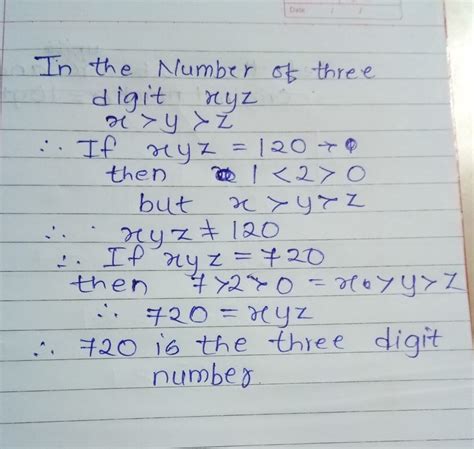 Date
In the Number of three
digit xyz
x > y > z
∴ If xyz = 120
then 1 < 2 > 0
but x > y > z
∴ xyz ≠ 120
∴ If xyz = 720
then 7 > 2 > 0 = x > y > z
∴ 720 = xyz
∴ 720 is the three digit
number